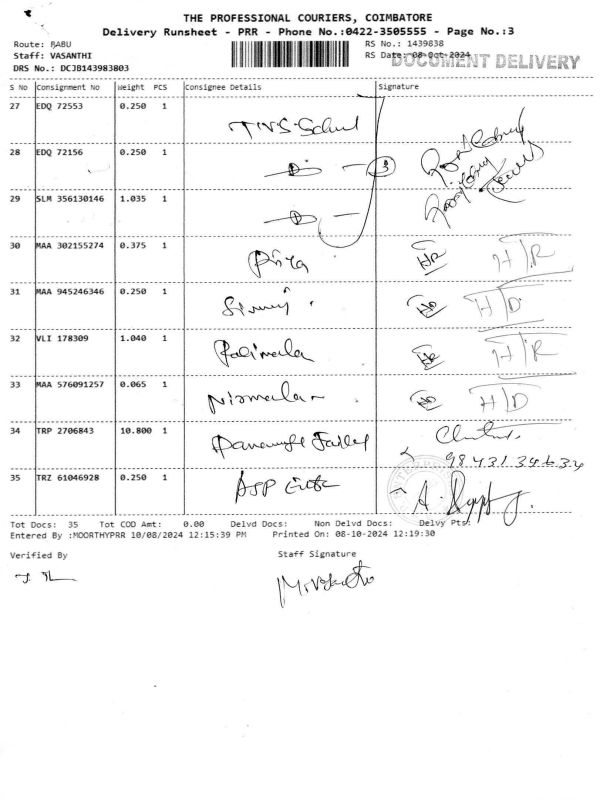 THE PROFESSIONAL COURIERS, COIMBATORE
Delivery Runsheet - PRR - Phone No.:0422-3505555 - Page No.:3
Route: BABU
RS No.: 1439838
Staff: VASANTHI
RS Date: 08-Oct-2024
DOCUMENT DELIVERY
DRS No.: DCJB143983803
S No Consignment No Weight PCS Consignee Details Signature
27 EDQ 72553 0.250 1
28 EDQ 72156 0.250 1 3
29 SLM 356130146 1.035 1
30 MAA 302155274 0.375 1 Priya HR H/R
31 MAA 945246346 0.250 1 H/D
32 VLI 178309 1.040 1 HR H/R
33 MAA 576091257 0.065 1 Nirmala H/D
34 TRP 2706843 10.800 1
35 TRZ 61046928 0.250 1
Tot Docs: 35 Tot COD Amt: 0.00 Delvd Docs: Non Delvd Docs: Delvy Pts:
Entered By :MOORTHYPRR 10/08/2024 12:15:39 PM Printed On: 08-10-2024 12:19:30
Verified By Staff Signature